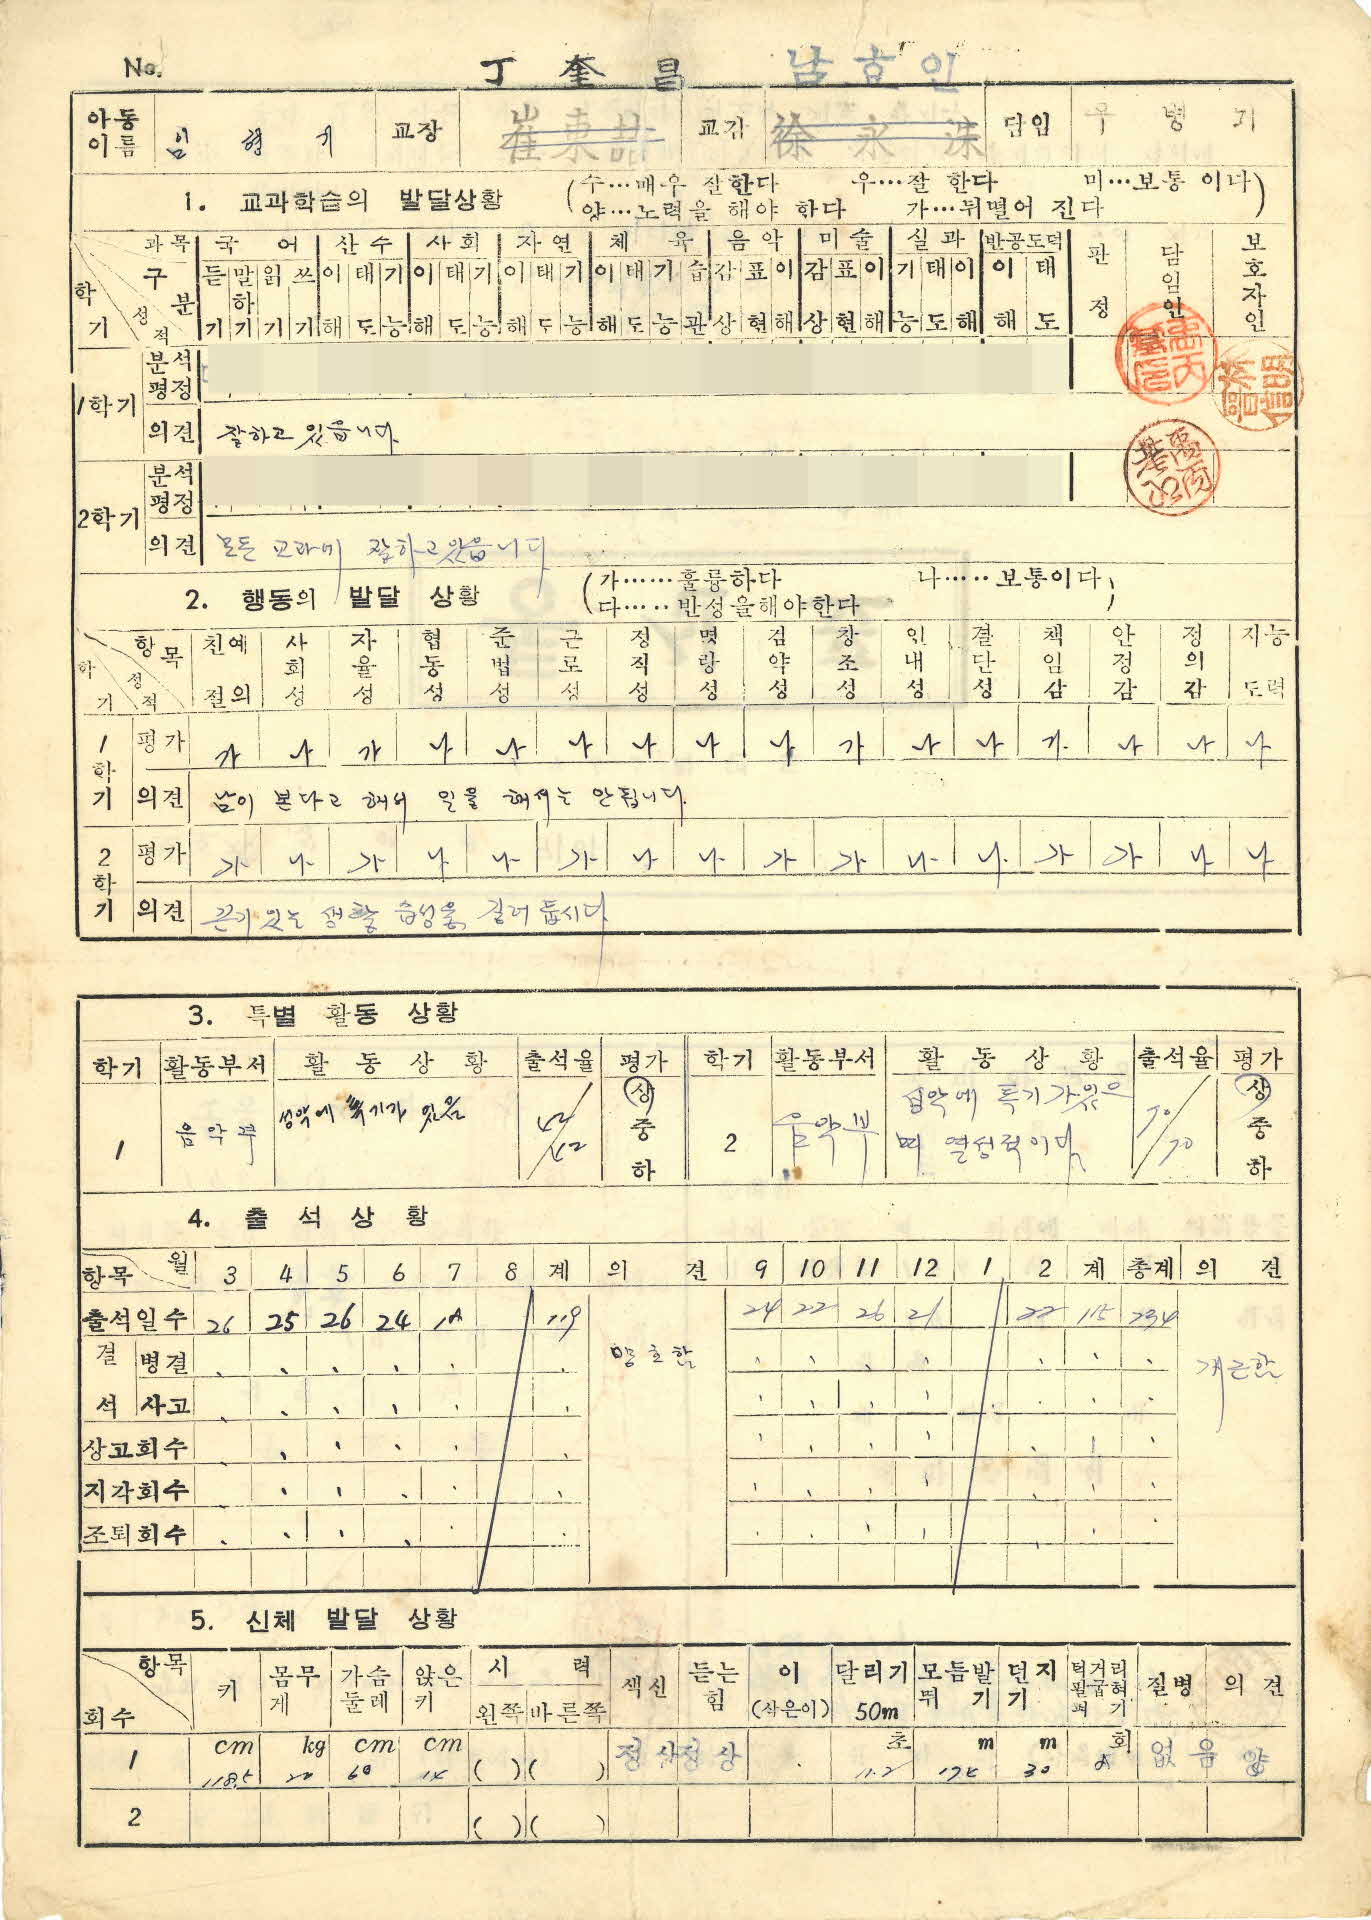 No. 丁奎昌 남효인
아동이름 임형기 교장 崔東喆 교감 徐永洙 담임 우병기
1. 교과학습의 발달상황 (수…매우 잘한다 우…잘 한다 미…보통 이다
양…노력을 해야 한다 가…뒤떨어 진다)
과목 국어 산수 사회 자연 체육 음악 미술 실과 반공도덕 판정 담임인 보호자인
학기 구분 성적 듣기 말하기 읽기 쓰기 이해 태도 기능 이해 태도 기능 이해 태도 기능 이해 태도 기능 습관 감상 표현 이해 감상 표현 이해 기능 태도 이해 이해 태도
1학기 분석평정
의견 잘하고 있읍니다.
2학기 분석평정
의견 모든 교과에 잘하고 있읍니다
2. 행동의 발달 상황 (가……훌륭하다 나……보통이다
다……반성을해야한다)
학기 항목 성적 친절 예의 사회성 자율성 협동성 준법성 근로성 정직성 명랑성 검약성 창조성 인내성 결단성 책임감 안정감 정의감 지도 능력
1학기 평가 가 나 가 나 나 나 나 나 나 가 나 나 가 나 나 나
의견 남이 본다고 해서 일을 해서는 안됩니다.
2학기 평가 가 나 가 나 나 가 나 나 가 가 나 나 가 가 나 나
의견 끈기 있는 생활 습성을 길러 둡시다
3. 특별 활동 상황
학기 활동부서 활동상황 출석율 평가 학기 활동부서 활동상황 출석율 평가
1 음악부 성악에 특기가 있음 42/42 상 중 하 2 음악부 성악에 특기가있으
며 열성적이다. 70/70 상 중 하
4. 출석상황
항목 월 3 4 5 6 7 8 계 의견 9 10 11 12 1 2 계 총계 의견
출석일수 26 25 26 24 18 119 양호함 24 22 26 21 22 115 234 개근함
결석 병결
사고
상고회수
지각회수
조퇴회수
5. 신체 발달 상황
항목 회수 키 몸무게 가슴둘레 앉은키 시력 왼쪽 바른쪽 색신 듣는힘 이 (삭은이) 달리기 50m 모듬발뛰기 던지기 턱걸이 팔굽혀펴기 질병 의견
1 cm 118.5 kg 20 cm 60 cm ( ) ( ) 정상 정상 초 11.2 m m 30 회 없음 양
2 ( ) ( )